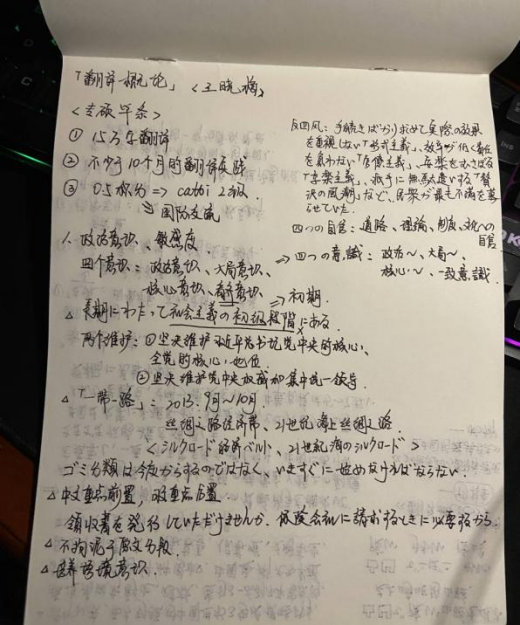 「翻译概论」 <王晓梅>
<专硕毕条>
① 15万字翻译
② 不少于10个月的翻译实践
③ 0.5积分 => catti 2级.
国际交流
1. 政治意识、敏感度
四个意识：政治意识、大局意识、
核心意识、看齐意识
=> 初期.
△ 長期にわたって社会主義の初級段階にある.
两个维护：①坚决维护习近平总书记党中央的核心、
全党的核心地位.
②坚决维护党中央权威和集中统一领导.
△「一带一路」：2013. 9月～10月.
丝绸之路经济带、21世纪海上丝绸之路.
<シルクロード経済ベルト、21世紀海のシルクロード>
ゴミ分類は今度からするのではなく、いますぐに始めなければならない.
△ 中文重点前置，日文重点后置.
領収書を発行していただけませんか、保険会社に請求するときに必要するから.
△ 不拘泥于原文分段.
△ 培养语境意识.
反四風：手続きばかり求めて実際の効果
を重視しない「形式主義」、
を負わない「官僚主義」、享楽をむさぼる
「享楽主義」、派手に無駄遣いする「贅
沢の風潮」など、民衆が最も不満を募
らせていた.
四つの自信：道路、理論、制度、文化への
自信
=> 四つの意識：政治～、大局～、
核心～、一致意識.